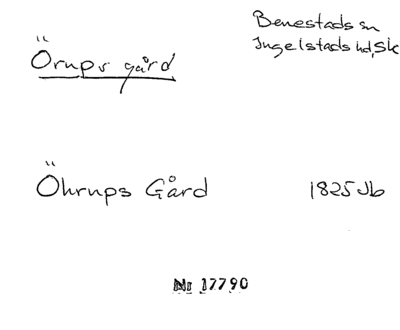 Örups gård
Benestads sn
Ingelstads hd, Sk
Öhrups Gård
1825 Jb
Nr 17790